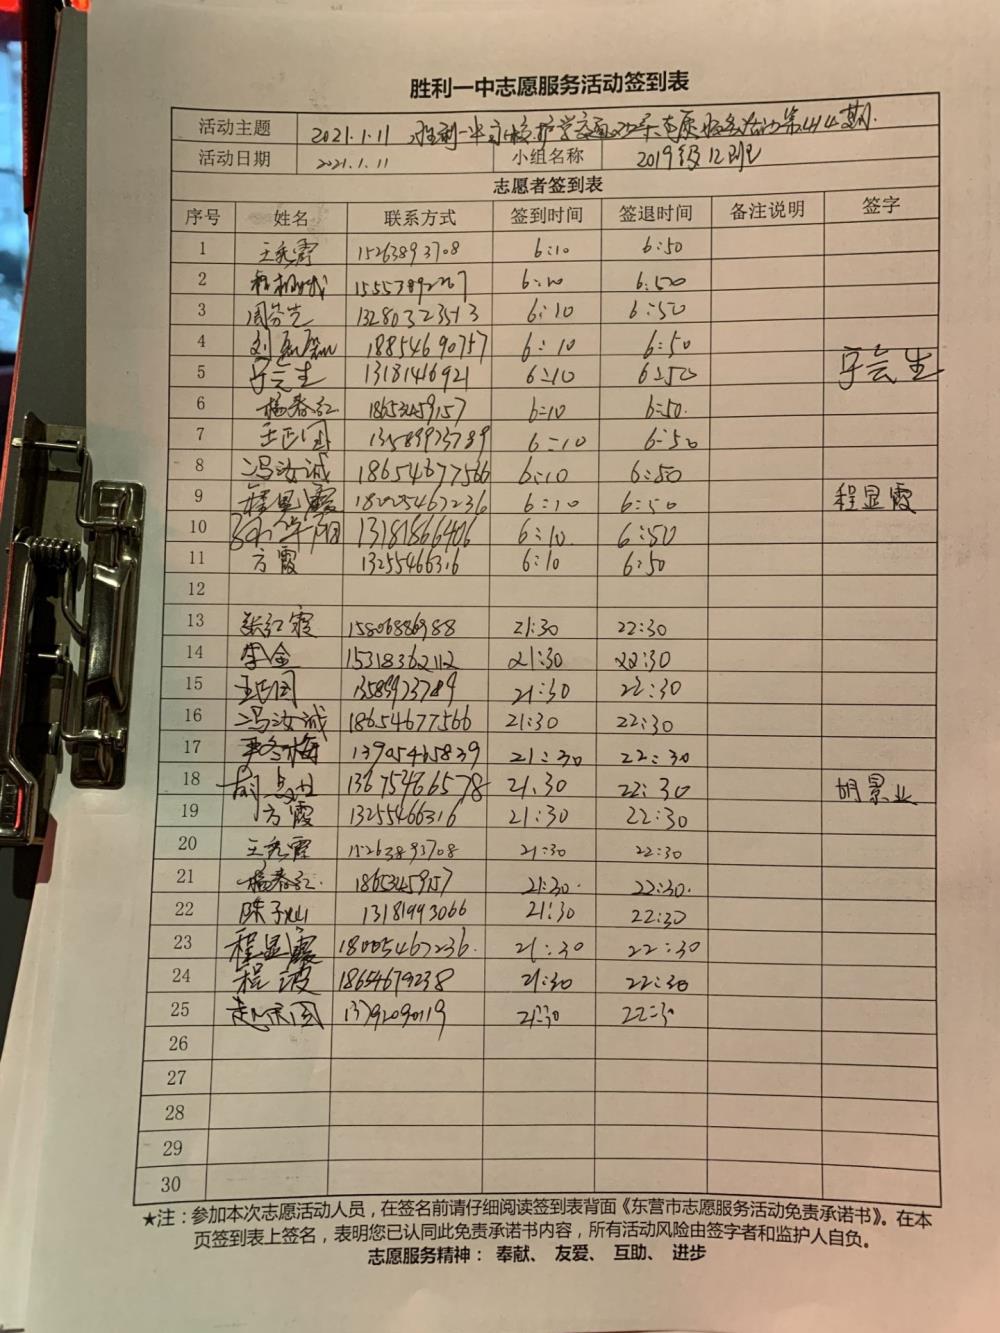 胜利一中志愿服务活动签到表
活动主题 2021.1.11 胜利一中 护学 志愿服务活动第414期.
活动日期 2021.1.11 小组名称 2019级12班
志愿者签到表
序号 姓名 联系方式 签到时间 签退时间 备注说明 签字
1 王秀霞 15263893708 6:10 6:50
2 15553892227 6:10 6:50
3 周芬先 13280323513 6:10 6:50
4 刘 18854690757 6:10 6:50
5 于云生 13181416921 6:10 6:50 于云生
6 杨春红 18653459157 6:10 6:50
7 王正国 13589973789 6:10 6:50
8 冯汝诚 18654677566 6:10 6:50
9 程显霞 18005467236 6:10 6:50 程显霞
10 13181866406 6:10 6:50
11 方霞 13255466316 6:10 6:50
12
13 张红霞 15806886988 21:30 22:30
14 李金 15318362112 21:30 22:30
15 王正国 13589973789 21:30 22:30
16 冯汝诚 18654677566 21:30 22:30
17 13905465839 21:30 22:30
18 胡景业 13675466578 21:30 22:30 胡景业
19 方霞 13255466316 21:30 22:30
20 王秀霞 15263893708 21:30 22:30
21 杨春红 18653459157 21:30 22:30
22 陈子灿 13181993066 21:30 22:30
23 程显霞 18005467236 21:30 22:30
24 程波 18654679238 21:30 22:30
25 赵 国 13792090119 21:30 22:30
26
27
28
29
30
★注：参加本次志愿活动人员，在签名前请仔细阅读签到表背面《东营市志愿服务活动免责承诺书》。在本
页签到表上签名，表明您已认同此免责承诺书内容，所有活动风险由签字者和监护人自负。
志愿服务精神： 奉献、 友爱、 互助、 进步